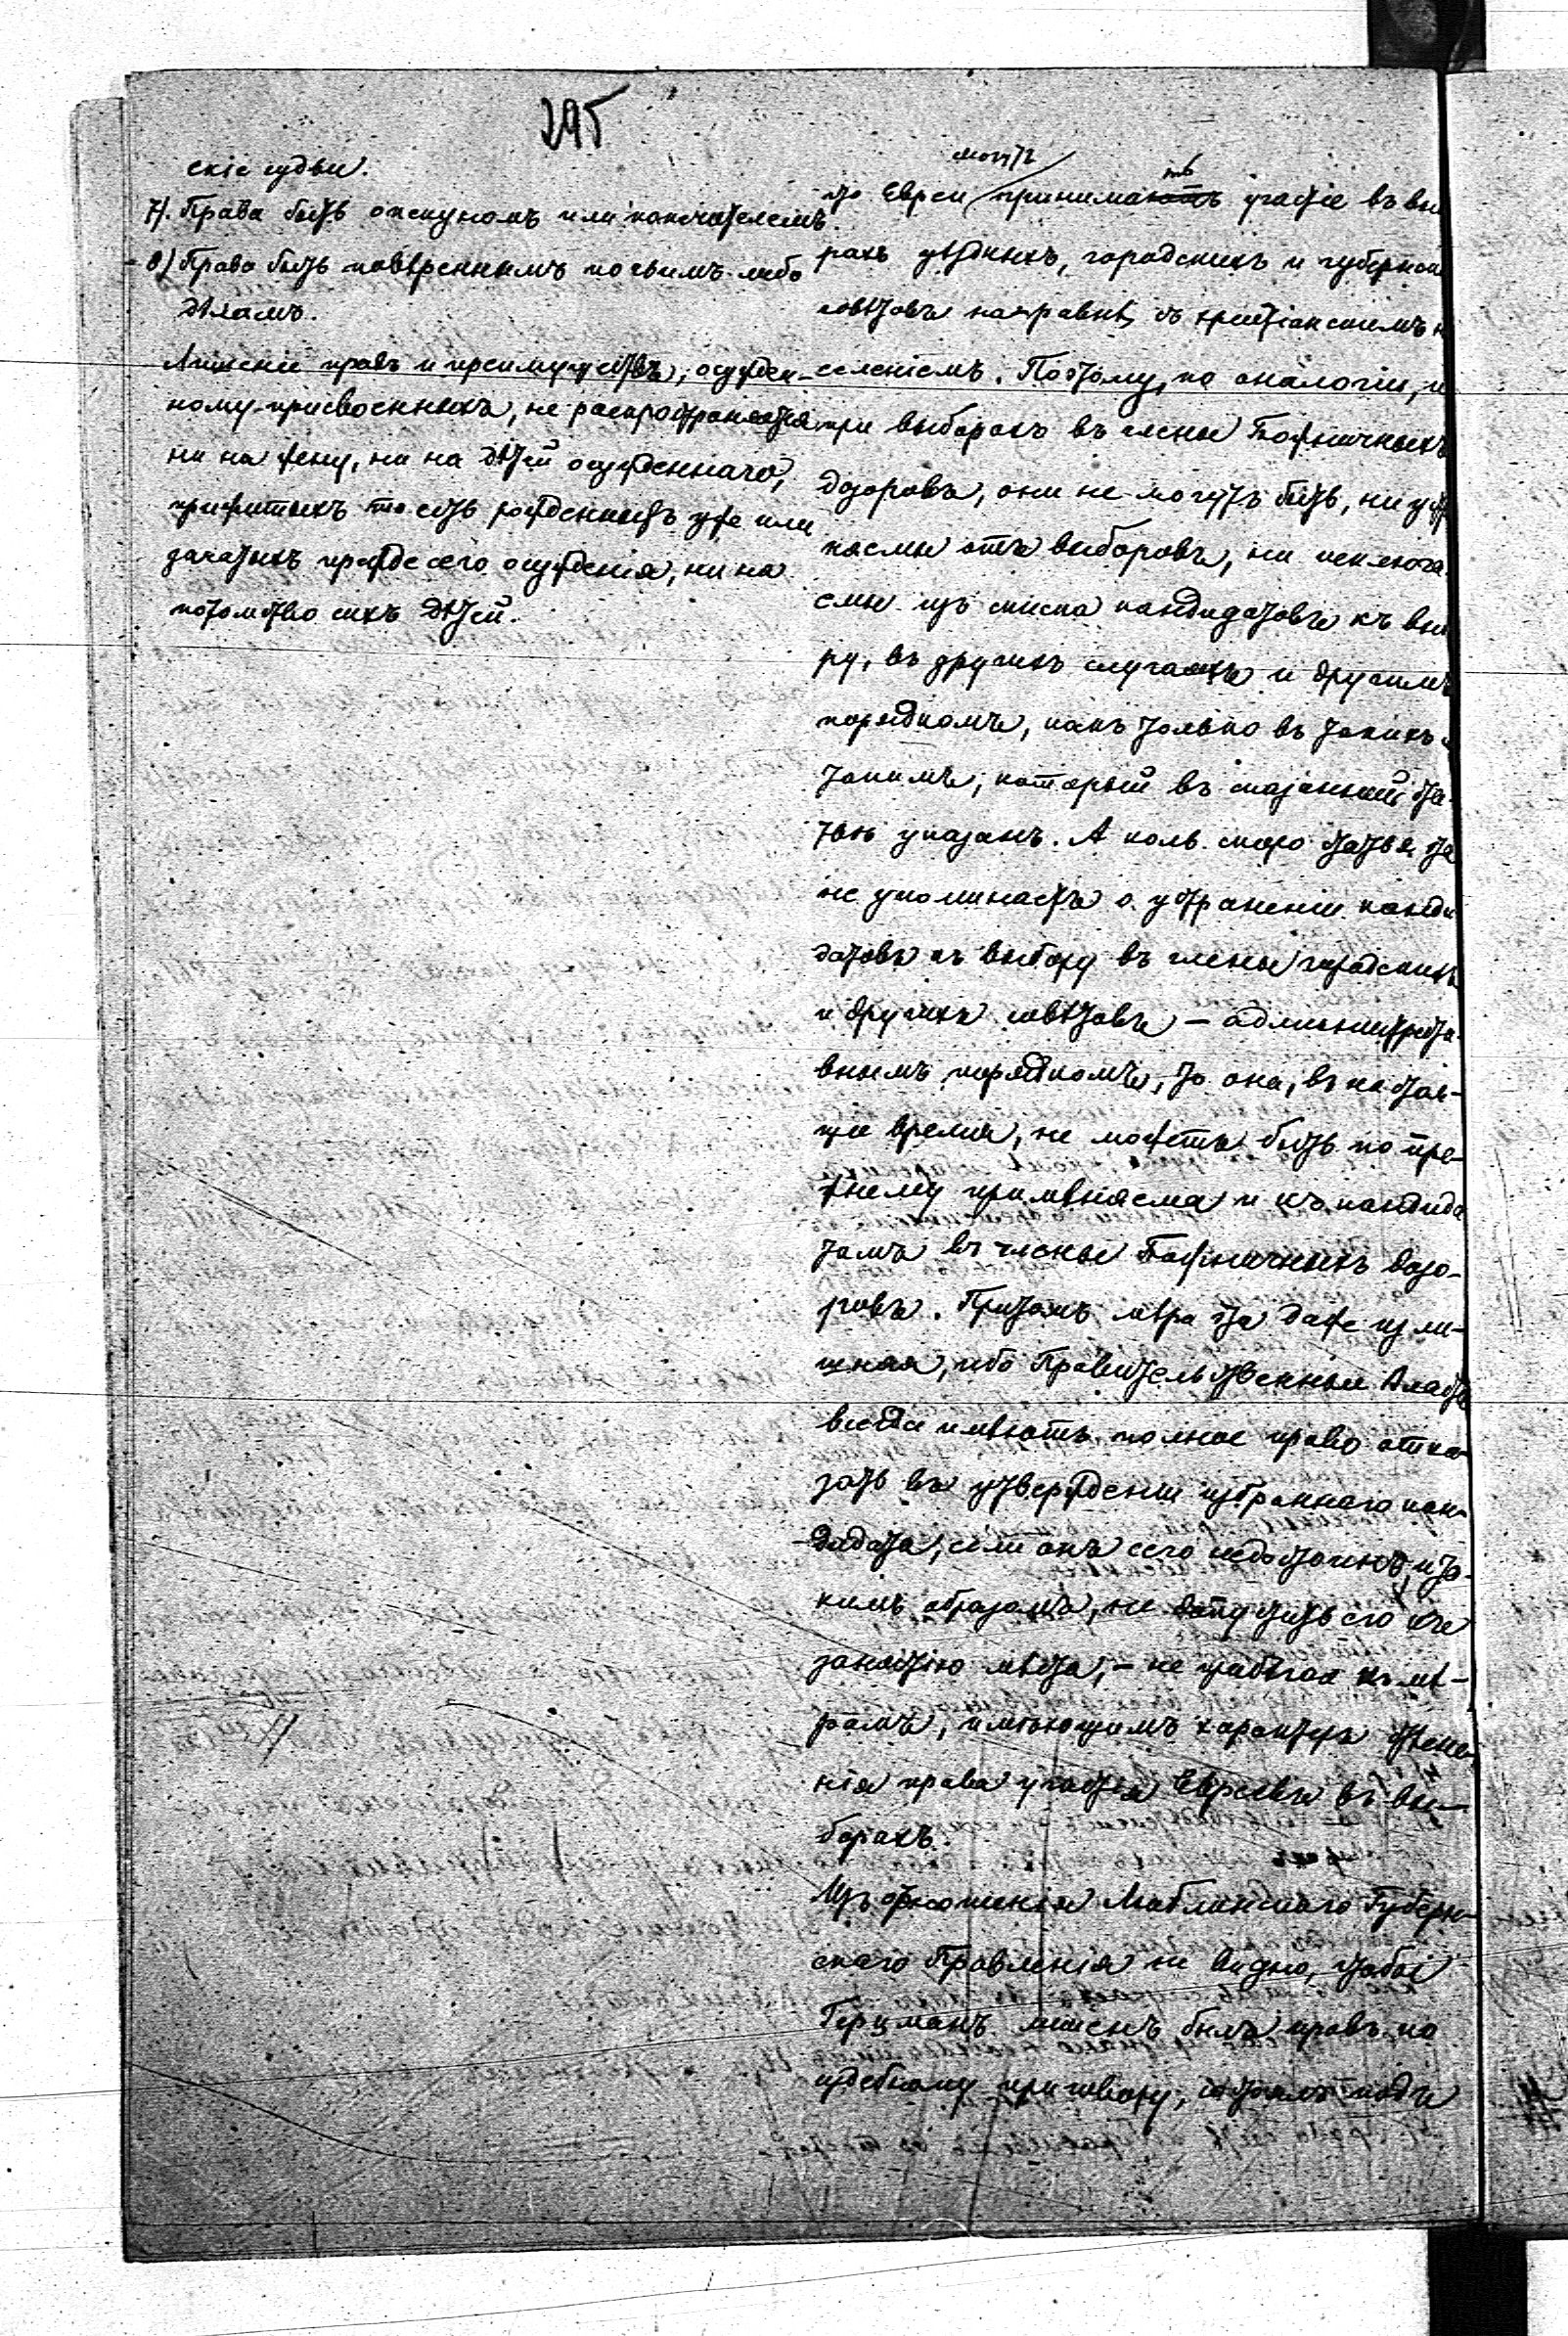 295
скіе судьи.
7). Права быть опекуномъ или попечителемъ.
8) Право быть повѣреннымъ по чьимъ-либо
дѣламъ.
Лишеніе правъ и преимуществъ, осужден-
ному присвоенныхъ, не распространяется
ни на жену, ни на дѣтей осужденнаго,
прижитыхъ то есть рожденныхъ уже или
зачатыхъ прежде сего осужденія, ни на
потомство сихъ дѣтей.
могутъ ть
то Евреи принимаютъ участіе въ вы
рахъ уѣздныхъ, городскихъ и губернск
совѣтовъ наравнѣ съ христіанскимъ н
селеніемъ. Поэтому, по аналогіи, и
при выборахъ въ члены Божничныхъ
дозоровъ, они не могутъ быть, ни устр
няемы отъ выборовъ, ни исключа
емы изъ списка кандидатовъ къ вы
ру, въ другихъ случаяхъ и другимъ
порядкомъ, какъ только въ такихъ и
такимъ, который въ сказанной ста
тьѣ указанъ. А коль скоро статья эта
не упоминаетъ о устраненіи канди
датовъ къ выбору въ члены городскихъ
и другихъ совѣтовъ – администрати
внымъ порядкомъ, то она, въ настоя-
щее время, не можетъ быть по пре-
жнему примѣняема и къ кандида
тамъ въ члены Божничныхъ дозо-
ровъ. Притомъ мѣра эта даже изли-
шняя, ибо Правительственныя Власти
всегда имѣютъ полное право отка-
зать въ утвержденіи избраннаго кан-
дидата, если онъ сего недостоинъ, и та-
кимъ образомъ, не допустить его къ
занятію мѣста, – не прибѣгая къ мѣ-
рамъ, имѣющимъ характеръ стѣсне-
нія права участія Евреевъ въ вы-
борахъ.
Изъ отношенія Люблинскаго Губерн-
скаго Правленія не видно, чтобы
Герцманъ лишенъ былъ правъ по
судебному приговору, состоялъ подъ